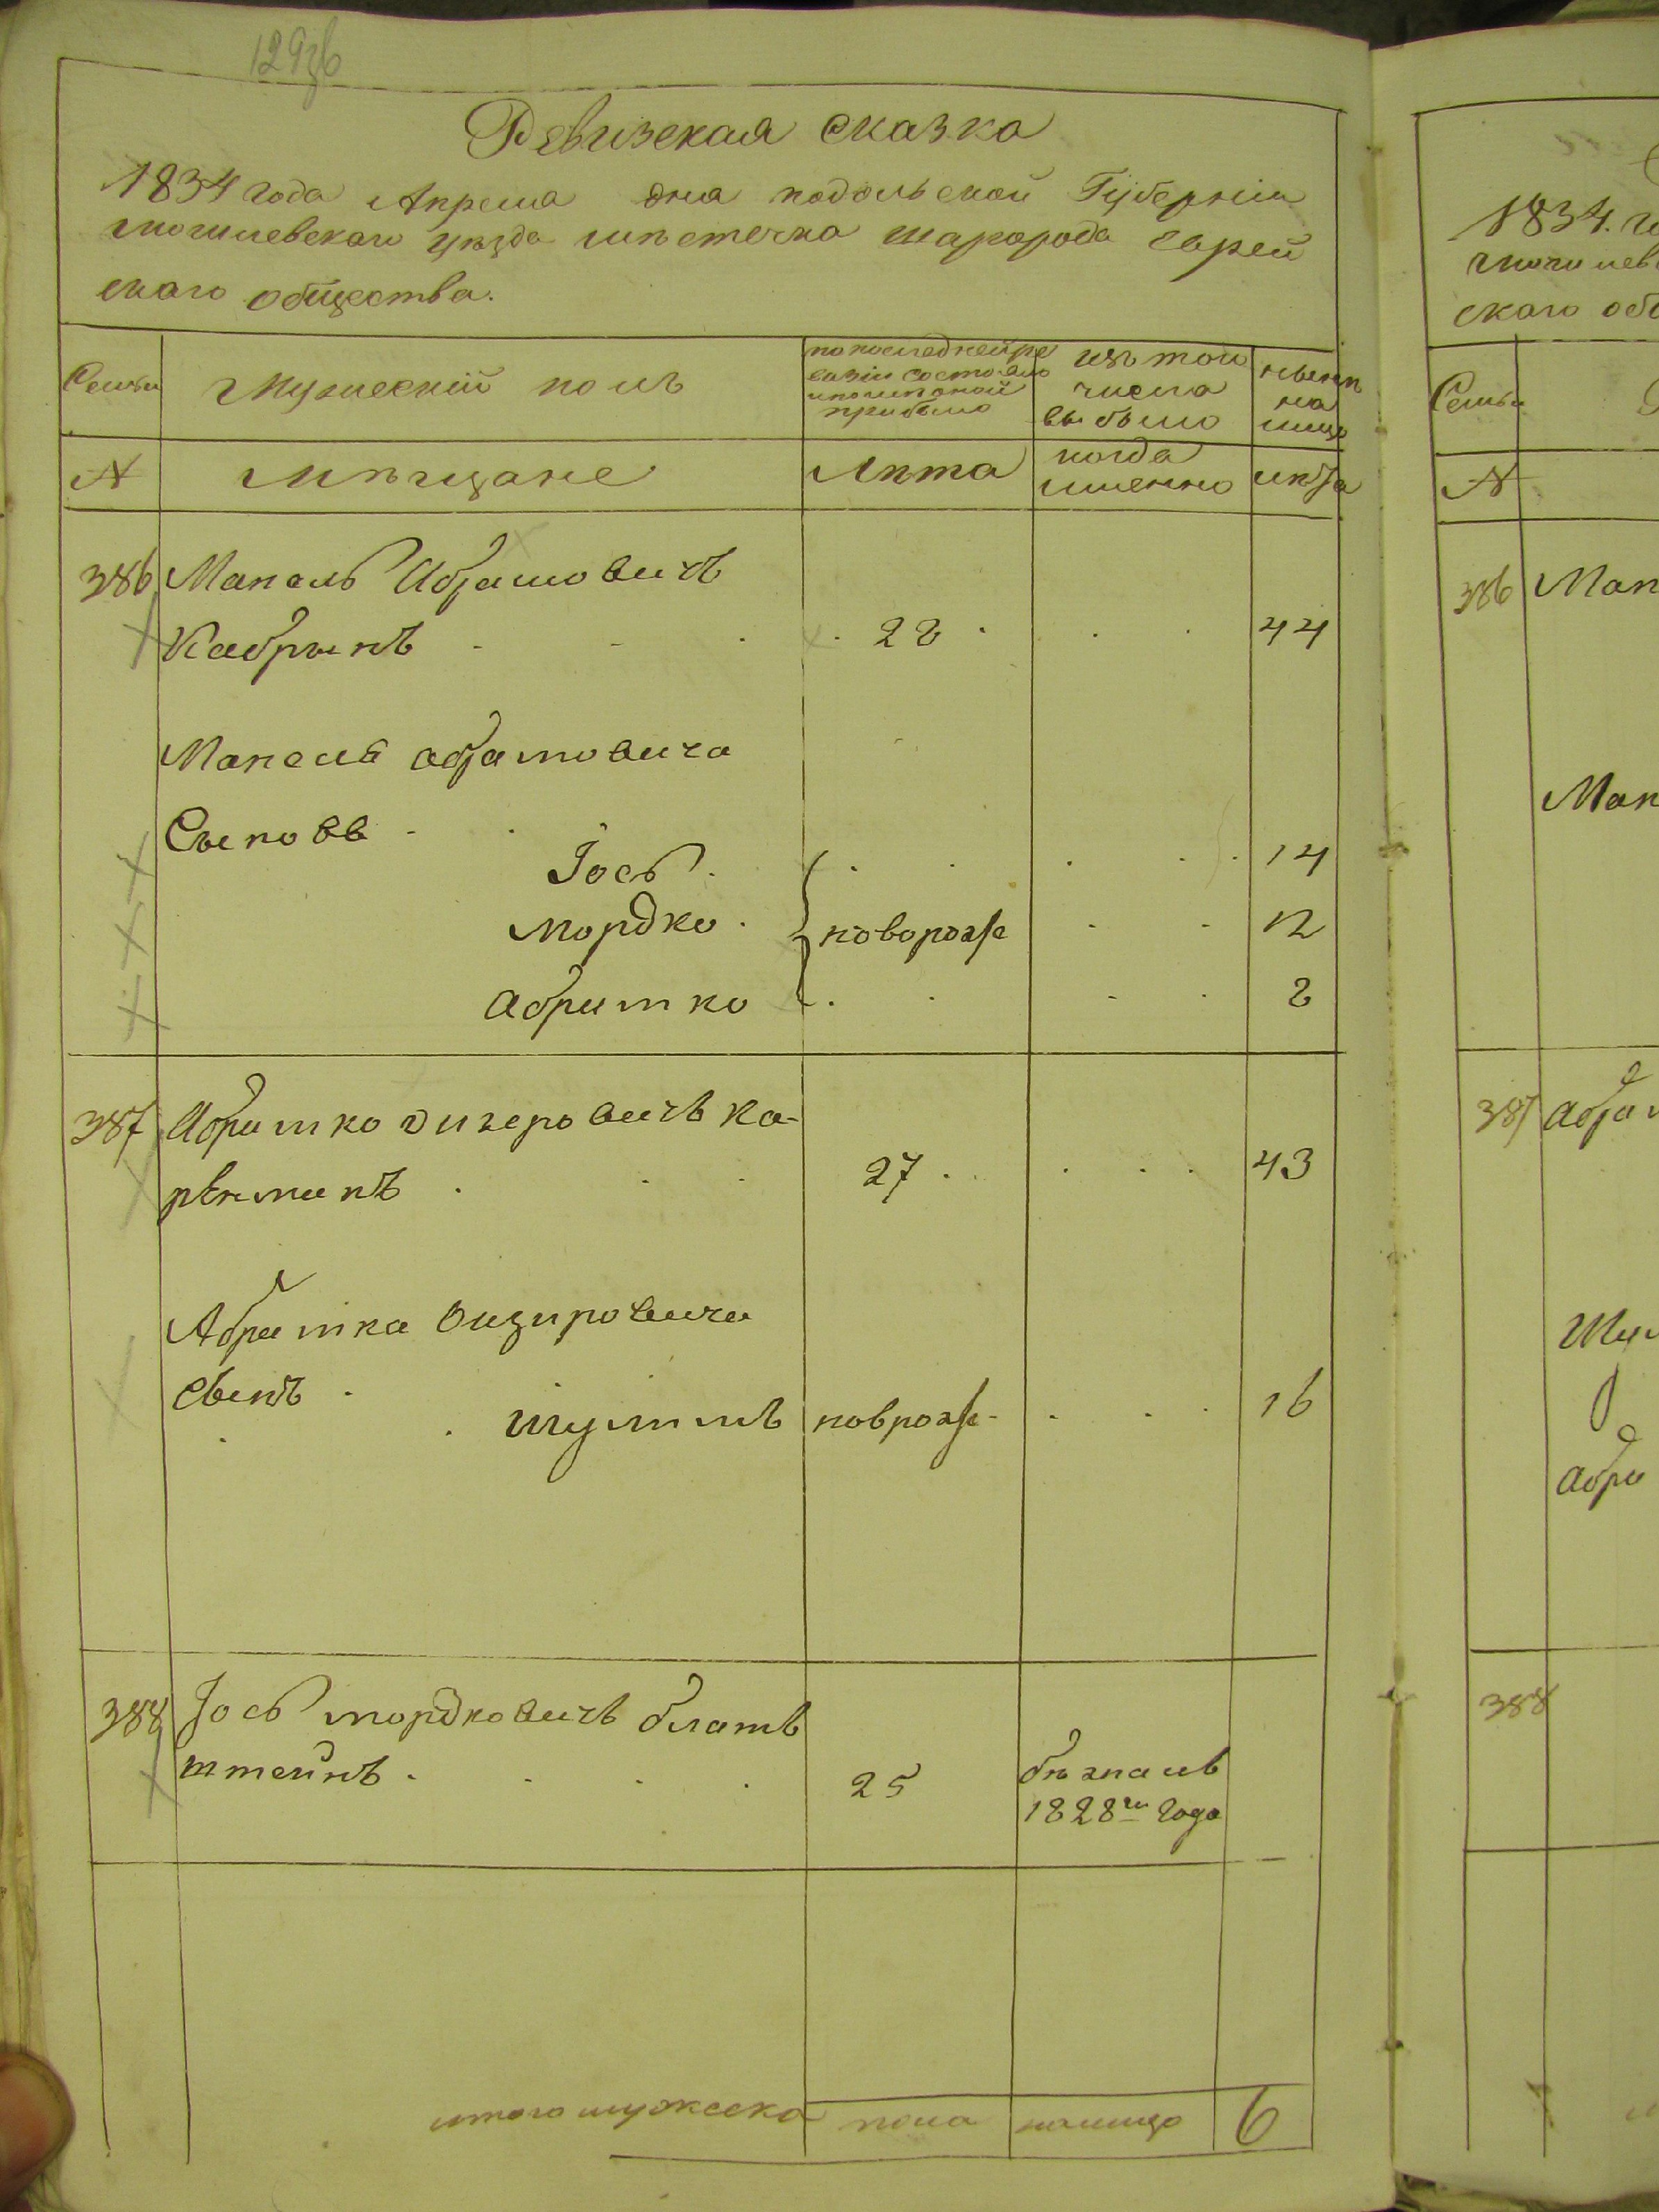 Ревизская сказка
1834 года Апреля дня подольской Губернии
могилевскаго уѣзда мѣстечка шарогорода еврей
скаго общества.
Семьи
Мужескій полъ
по последней ре
визіи состояло
и после оной
прибыло
изъ того
числа
выбыло
нынѣ
на
лицо
№
мѣщане
Лѣта
когда
именно
лѣта
386 Манель Абрамовичъ
Кабрынъ 22 44
Манеля абрамовича
Сыновя
Іось 14
мордко новорож 12
абрамко 2
387 Абрамко ... ка-
27 43
Абрамка
сынъ
шулимъ новрож 16
388 Іось мордковичъ блатъ
штейнъ 25
бѣжалъ
1828го года
итого мужеска пола налицо 6
1834. го
могилев
скаго об
Семьи
№
386 Ман
Ман
387 Абра
Шул
абра
388